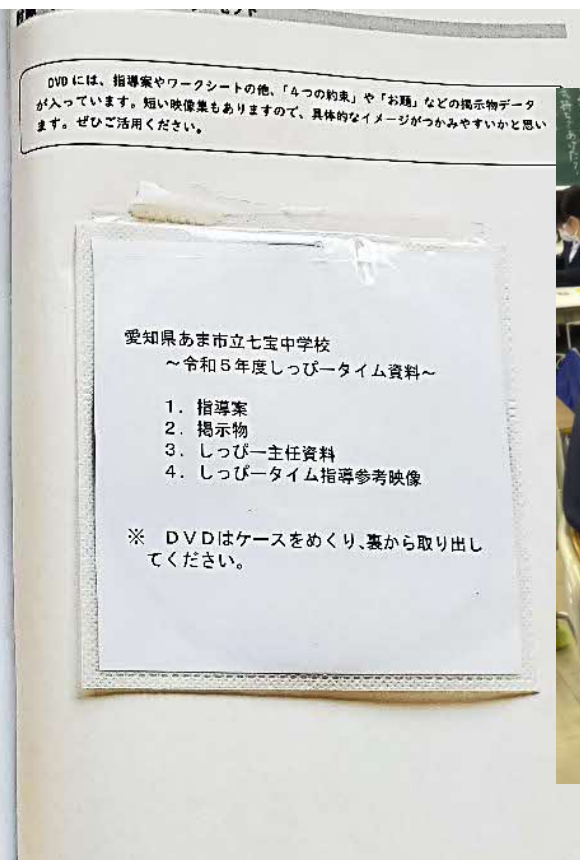 DVDには、指導案やワークシートの他、「4つの約束」や「お題」などの掲示物データ
が入っています。短い映像集もありますので、具体的なイメージがつかみやすいかと思い
ます。ぜひご活用ください。
愛知県あま市立七宝中学校
～令和5年度しっぴータイム資料～
1．指導案
2．掲示物
3．しっぴー主任資料
4．しっぴータイム指導参考映像
※　DVDはケースをめくり、裏から取り出し
てください。